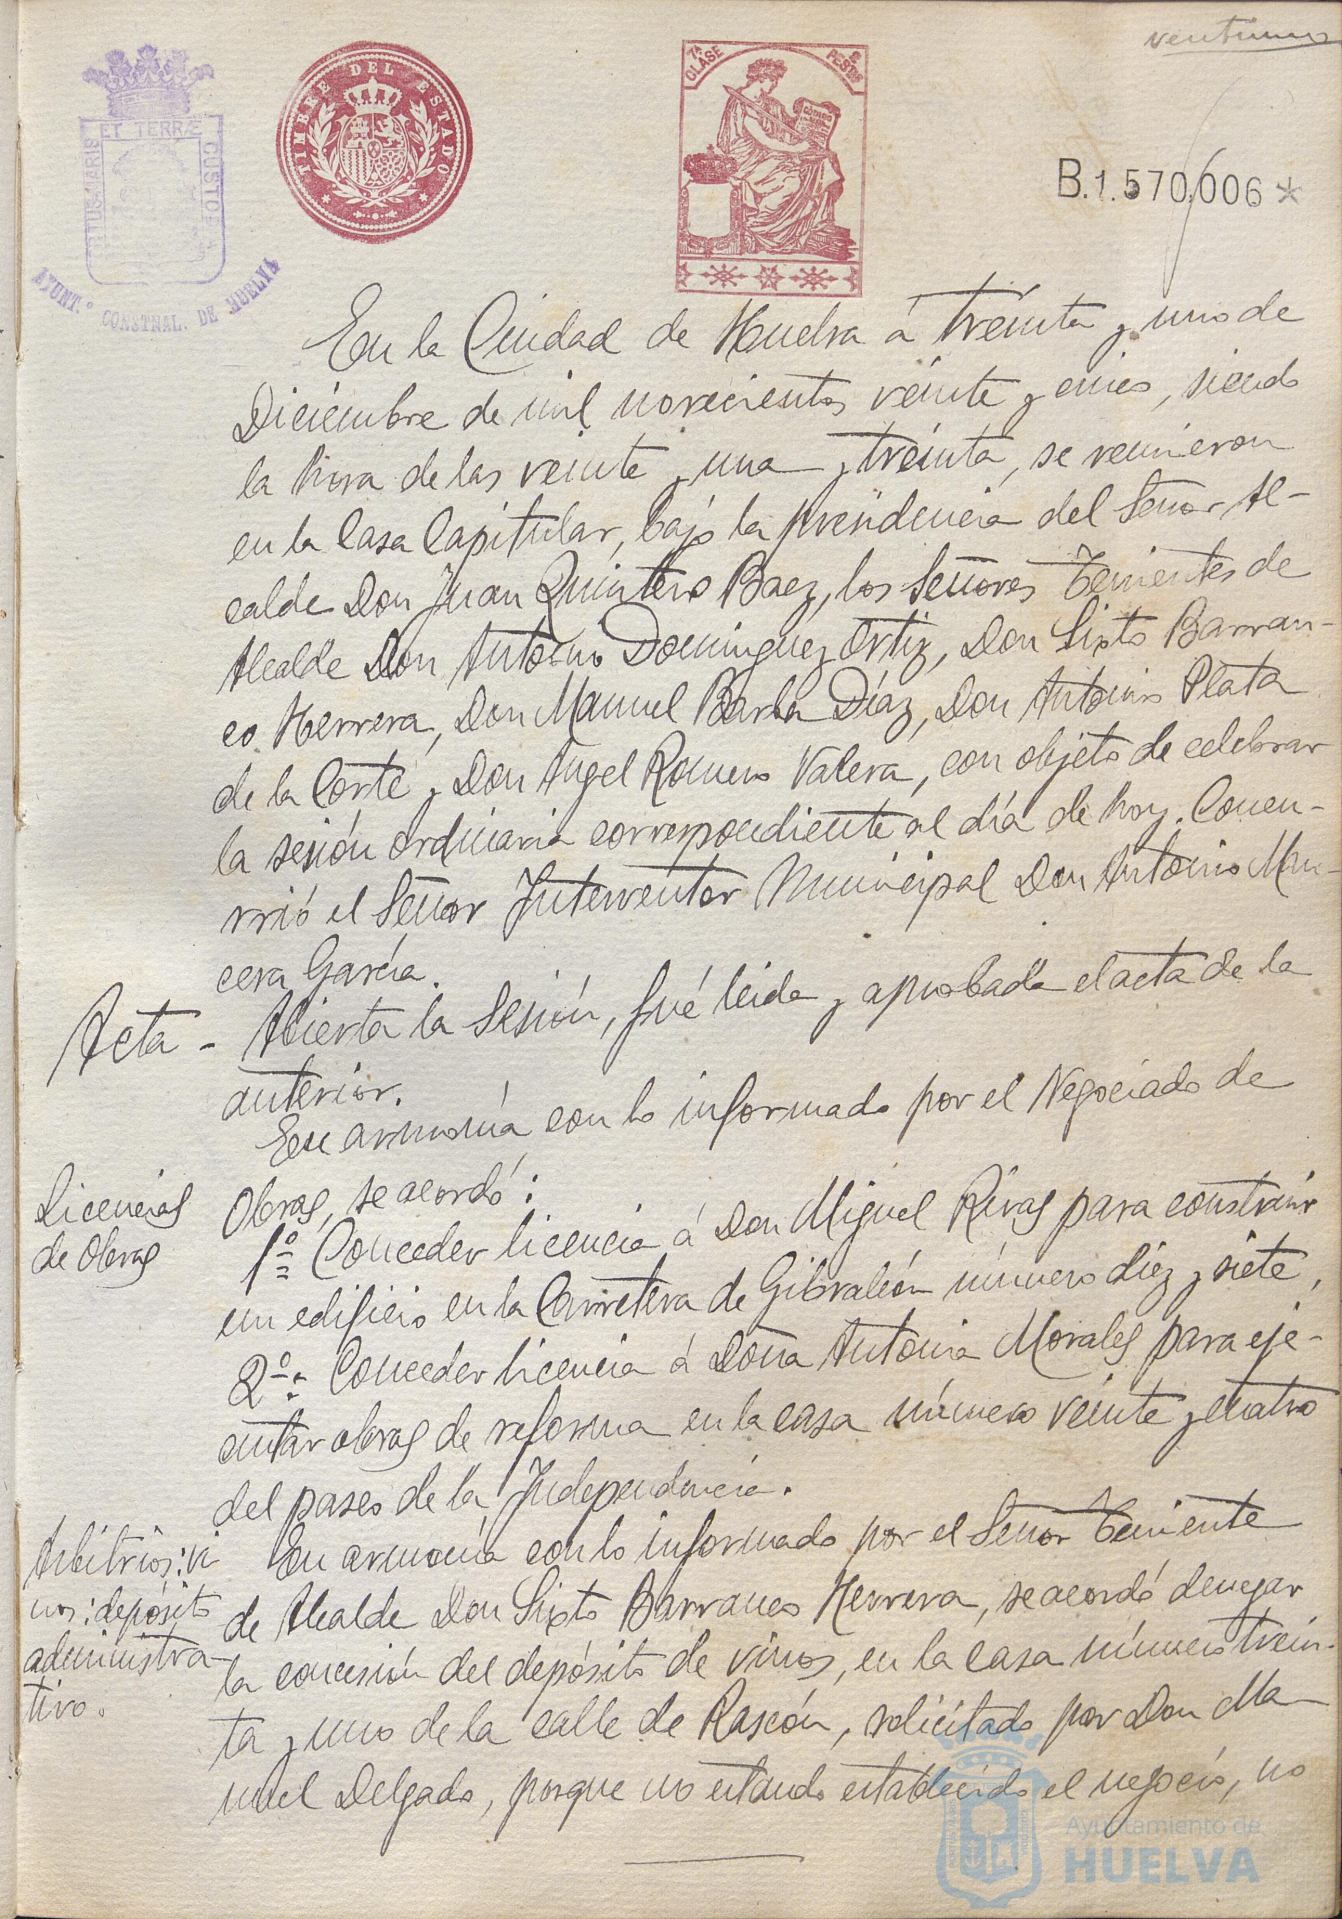 ventiuno
ET TERRÆ
PORTUS MARIS
CUSTODIA
AYUNT.º CONSTNAL. DE HUELVA
TIMBRE DEL ESTADO
7ª CLASE
PESTAS
B.1.570,006*
En la Ciudad de Huelva á treinta y uno de
Diciembre de mil novecientos veinte y cinco, siendo
la hora de las veinte y una y treinta, se reunieron
en la Casa Capitular, bajo la presidencia del Señor Al-
calde Don Juan Quintero Baez, los Señores Tenientes de
Alcalde Don Antonio Dominguez Ortiz, Don Sixto Barran-
co Herrera, Don Manuel Barba Díaz, Don Antonio Plata
de la Corte y Don Angel Romero Valera, con objeto de celebrar
la sesión ordinaria correspondiente al día de hoy. Concu-
rrió el Señor Interventor Municipal Don Antonio Mun-
cera García.
Acta - Abierta la Sesión, fué leida y aprobada el acta de la
anterior.
En armonía con lo informado por el Negociado de
Licencias
de Obras
Obras, se acordó:
1º Conceder licencia á Don Miguel Rivas para construir
un edificio en la Carretera de Gibraleón número diez y siete,
2º: Conceder licencia á Doña Antonia Morales para eje-
cutar obras de reforma en la casa número veinte y cuatro
del paseo de la Independencia.
Arbitrios: vi
nos: depósito
administra-
tivo.
En armonía con lo informado por el Señor Teniente
de Alcalde Don Sixto Barranco Herrera, se acordó denegar
la concesión del depósito de vinos, en la casa número trein-
ta y uno de la calle de Rascón, solicitado por Don Ma-
nuel Delgado, porque no estando establecido el negocio, no
Ayuntamiento de
HUELVA